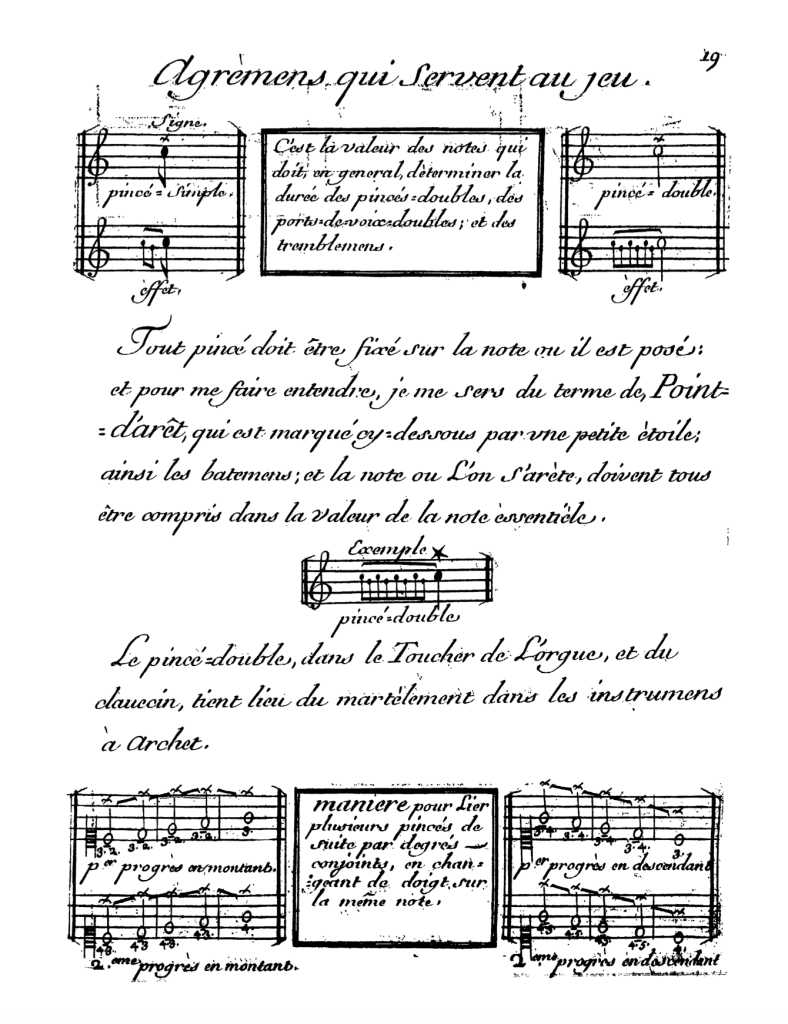 19
Agrèmens qui servent au jeu.
Signe.
pincé=simple.
èffet.
C'est la valeur des notes qui
doit, en general, déterminer la
durée des pincés=doubles, des
ports=de=voix=doubles; et des
tremblemens.
pincé=double.
èffet.
Tout pincé doit être fixé sur la note ou il est posé:
et pour me faire entendre, je me sers du terme de, Point=
=d'arêt, qui est marqué cy=dessous par une petite ètoile;
ainsi les batemens; et la note ou L'on s'arète, doivent tous
être compris dans la valeur de la note èssentièle.
Exemple
pincé=double
Le pincé=double, dans le Toucher de L'orgue, et du
clavecin, tient lieu du martèlement dans les instrumens
à Archet.
3·2. 3·2. 3·2. 3·2. 3.
p.er progrès en montant.
4·3. 4·3 4·3. 4·3. 4.
2.eme progrès en montant.
maniere pour Lier
plusieurs pincés de
suite par degrés
conjoints, en chan=
=geant de doigt sur
la même note.
3·4. 3·4. 3·4. 3·4. 3.
p.er progrès en descendant
4·5. 4·5. 4·5. 4·5. 4.
2.eme progrès en descendant